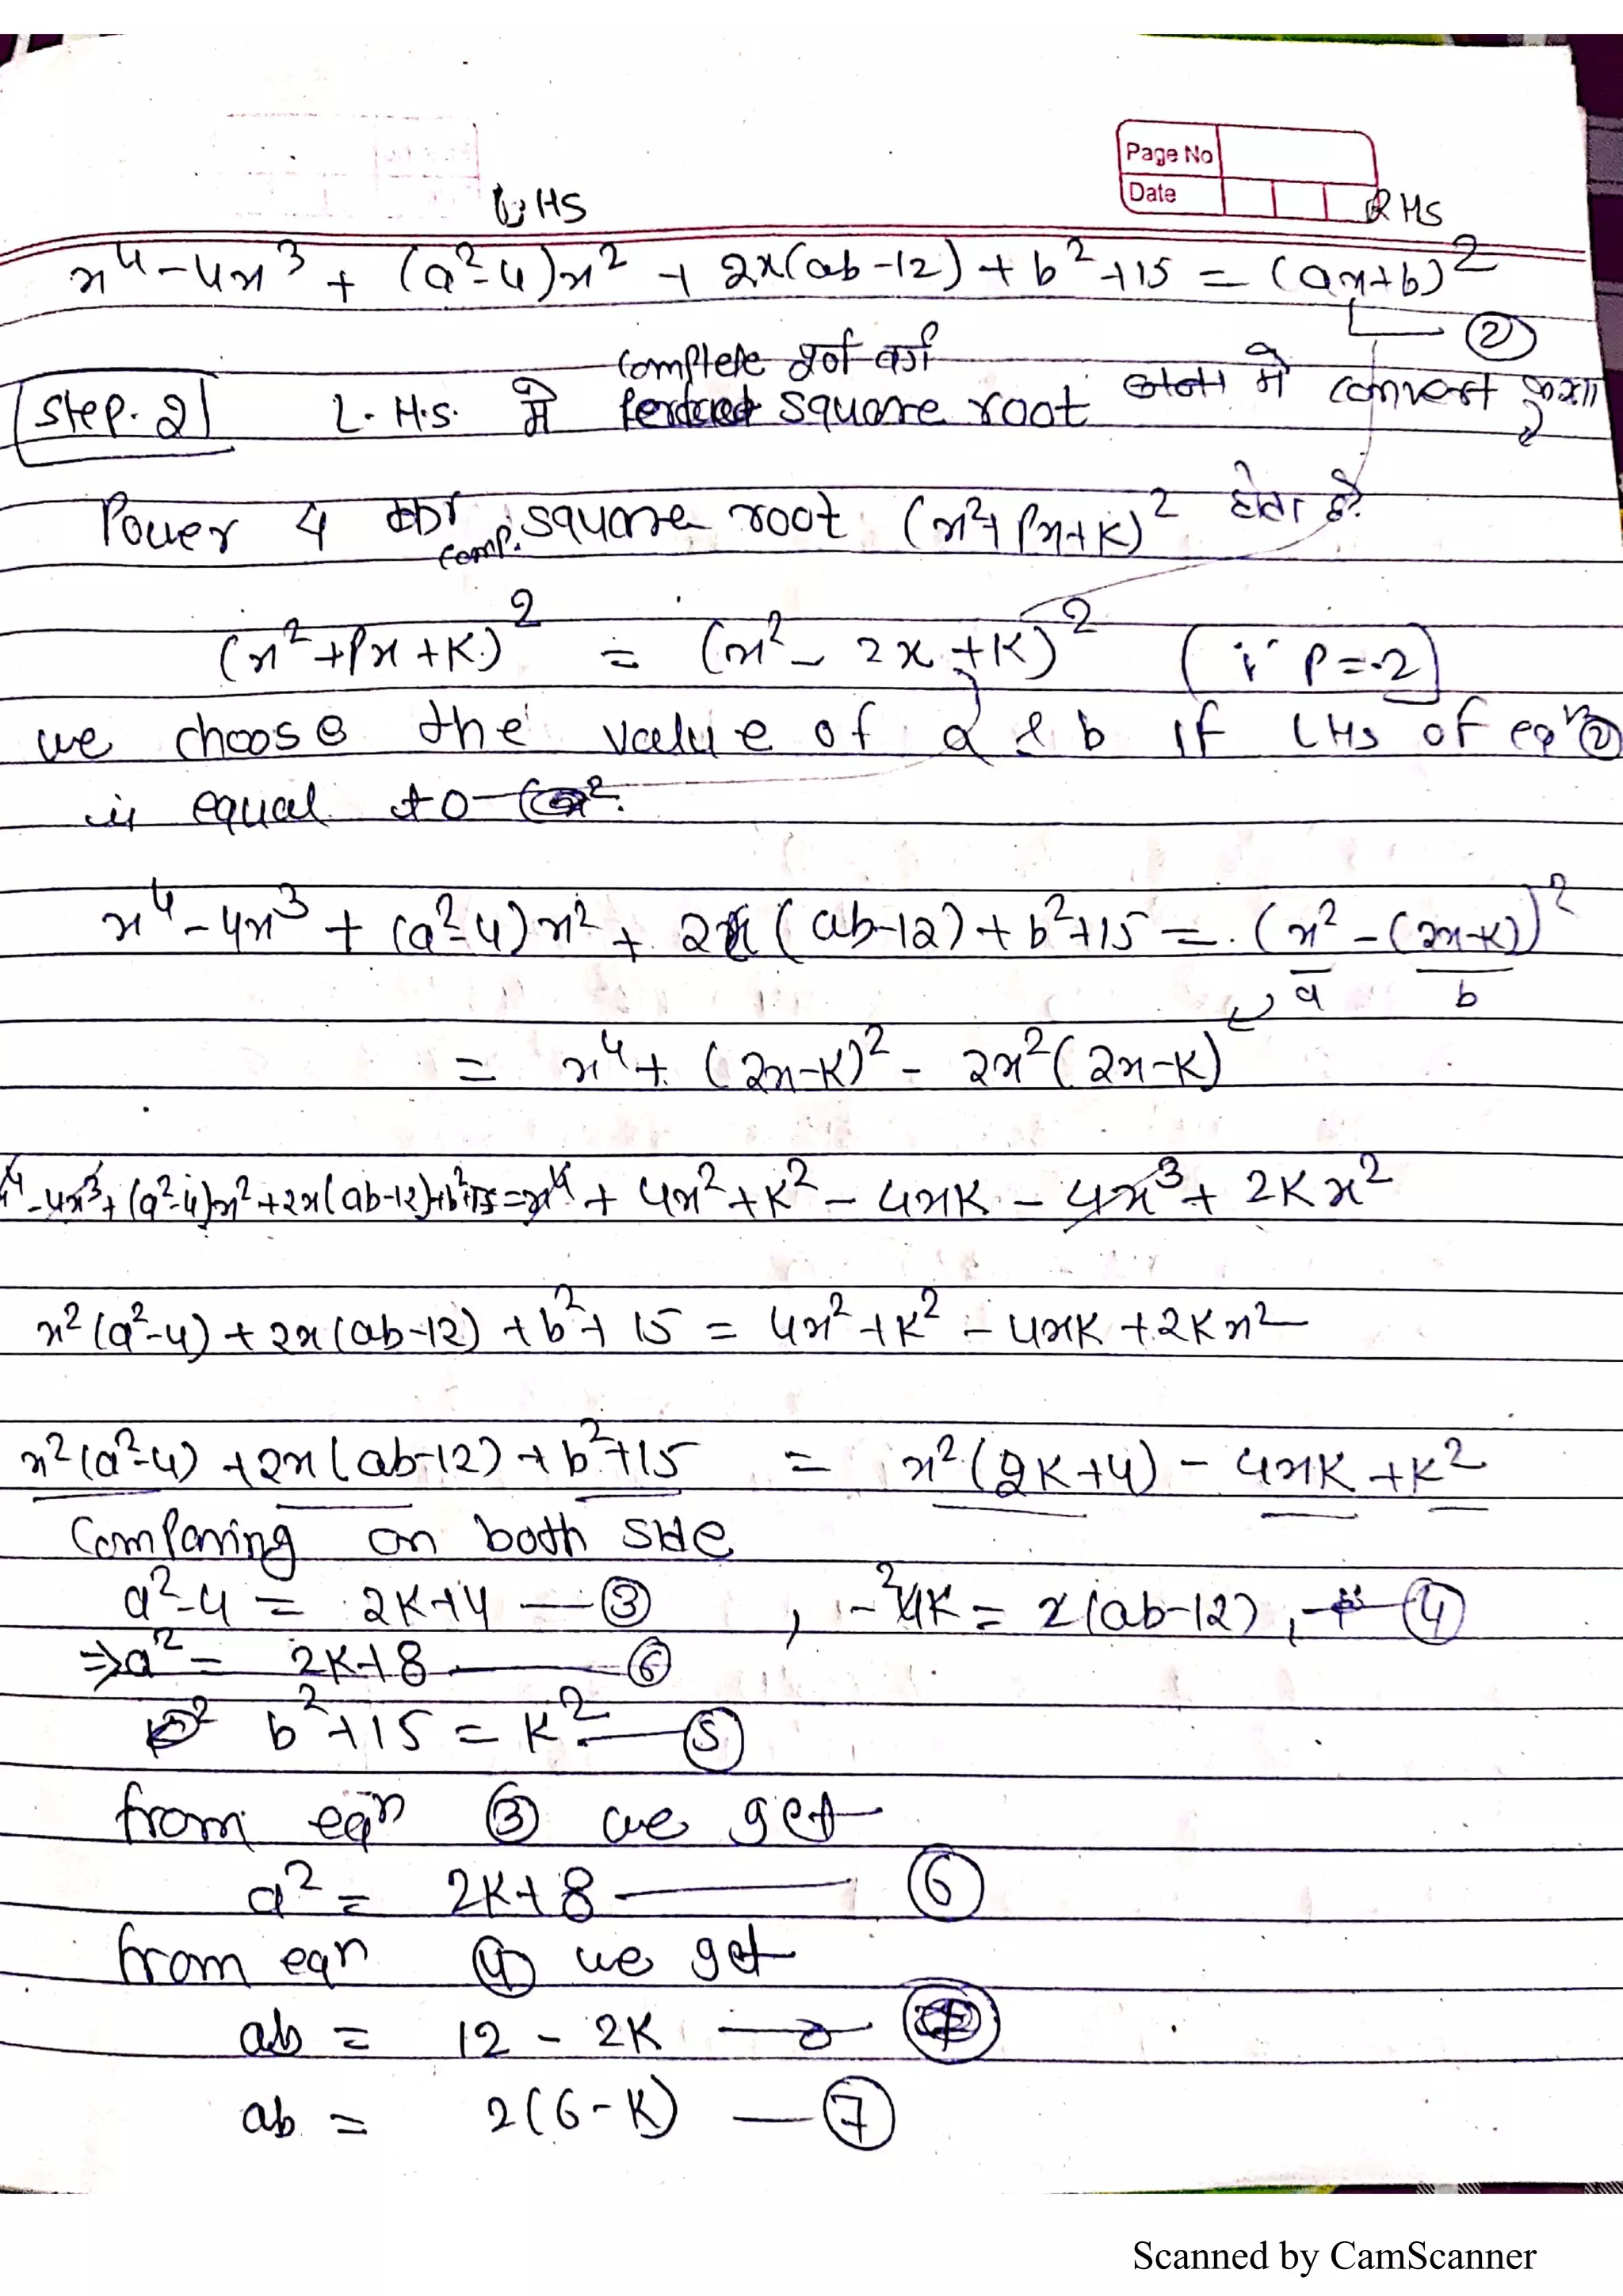 Page No
Date
LHS RHS
x⁴ - 4x³ + (a² - 4)x² + 2x(ab - 12) + b² + 15 = (ax + b)²
②
complete पूर्ण वर्ग
Step. 2 L.H.S. में square root बनाने में convert करना है
Power 4 का comp. square root (x² + Px + K)² होता है
(x² + Px + K)² = (x² - 2x + K)² (∵ P = -2)
we choose the value of a & b if LHS of eqⁿ ②
is equal to
x⁴ - 4x³ + (a² - 4)x² + 2x(ab - 12) + b² + 15 = (x² - (2x - K))²
a b
= x⁴ + (2x - K)² - 2x²(2x - K)
x⁴ - 4x³ + (a² - 4)x² + 2x(ab - 12) + b² + 15 = x⁴ + 4x² + K² - 4xK - 4x³ + 2Kx²
x²(a² - 4) + 2x(ab - 12) + b² + 15 = 4x² + K² - 4xK + 2Kx²
x²(a² - 4) + 2x(ab - 12) + b² + 15 = x²(2K + 4) - 4xK + K²
Comparing on both side
a² - 4 = 2K + 4 — ③ , - 4K = 2(ab - 12), — ④
⇒ a² = 2K + 8 — ⑥
b² + 15 = K² — ⑤
from eqⁿ ③ we get
a² = 2K + 8 — ⑥
from eqⁿ ④ we get
ab = 12 - 2K —
ab = 2(6 - K) — ⑦
Scanned by CamScanner